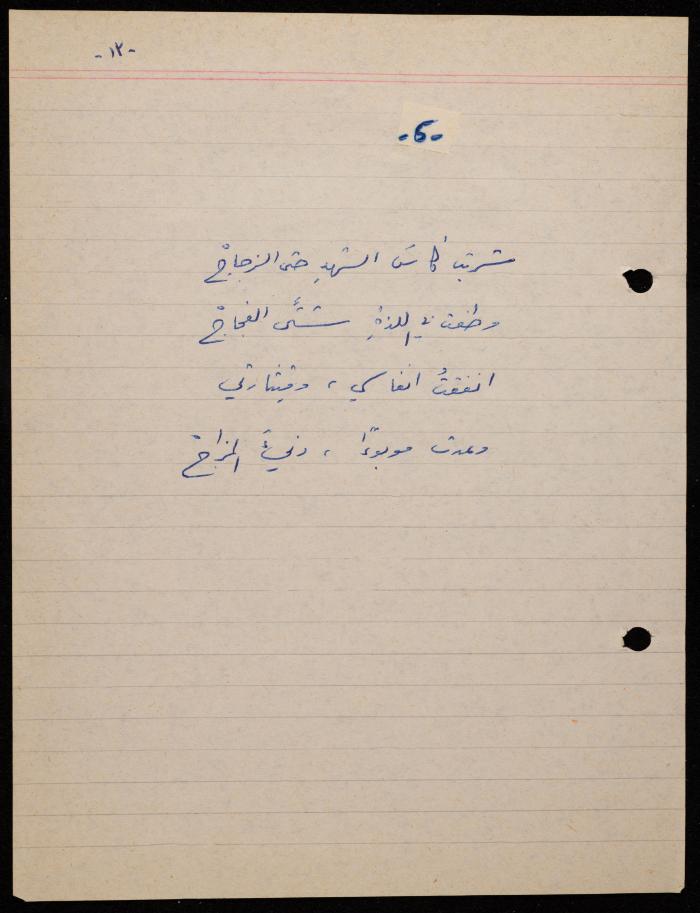 -١٢-
-5-
شربتُ كأسَ الشهدِ حتى الزجاجْ
وطفت في اللذةِ شتَّى الفجاجْ
انفقتُ انفاسي ، وقيثارتي
وعدت موبوءًا ، دنيءَ المزاجْ